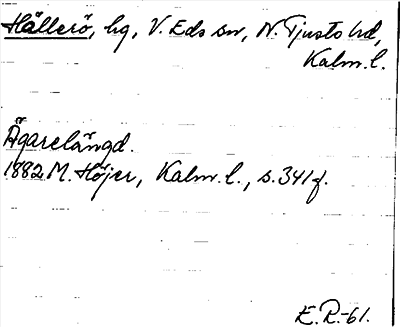 Hällerö, hg, V. Eds sn, N. Tjusts hd,
Kalm. l.
Ägarelängd.
1882 M. Höjer, Kalm. l., s. 341 f.
E. R.-61.